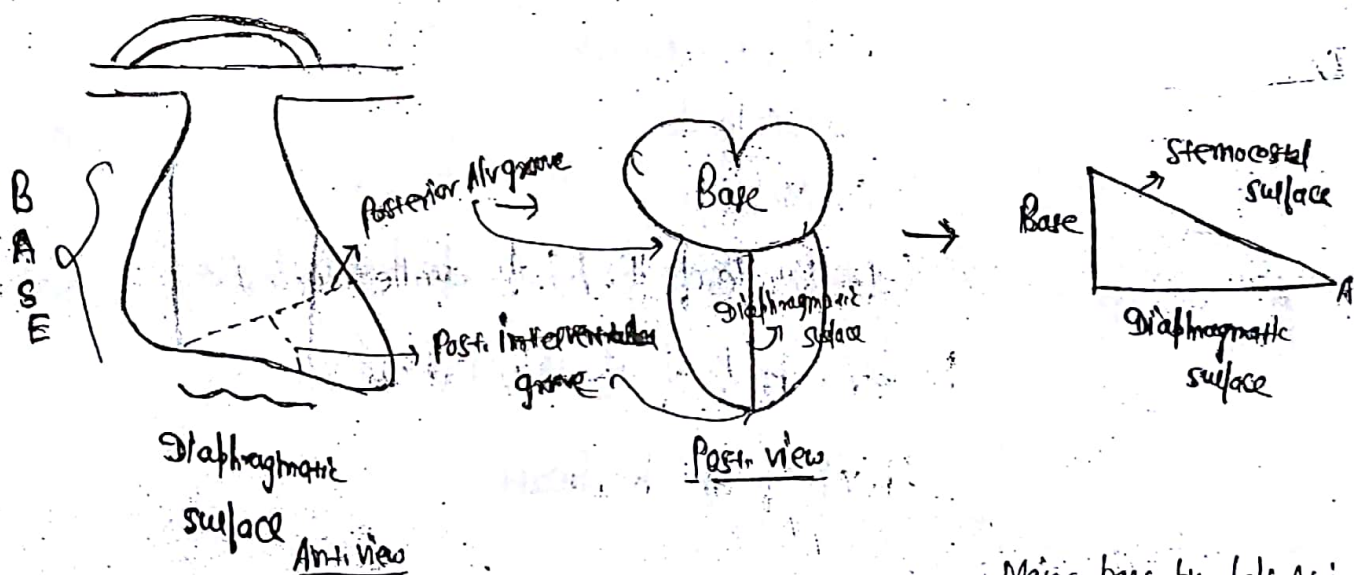 B
A
S
E
Posterior AV groove
Post. interventricular
groove
Diaphragmatic
surface
Ant. view
Base
Diaphragmatic
surface
Post. view
Sternocostal
surface
Base
A
Diaphragmatic
surface